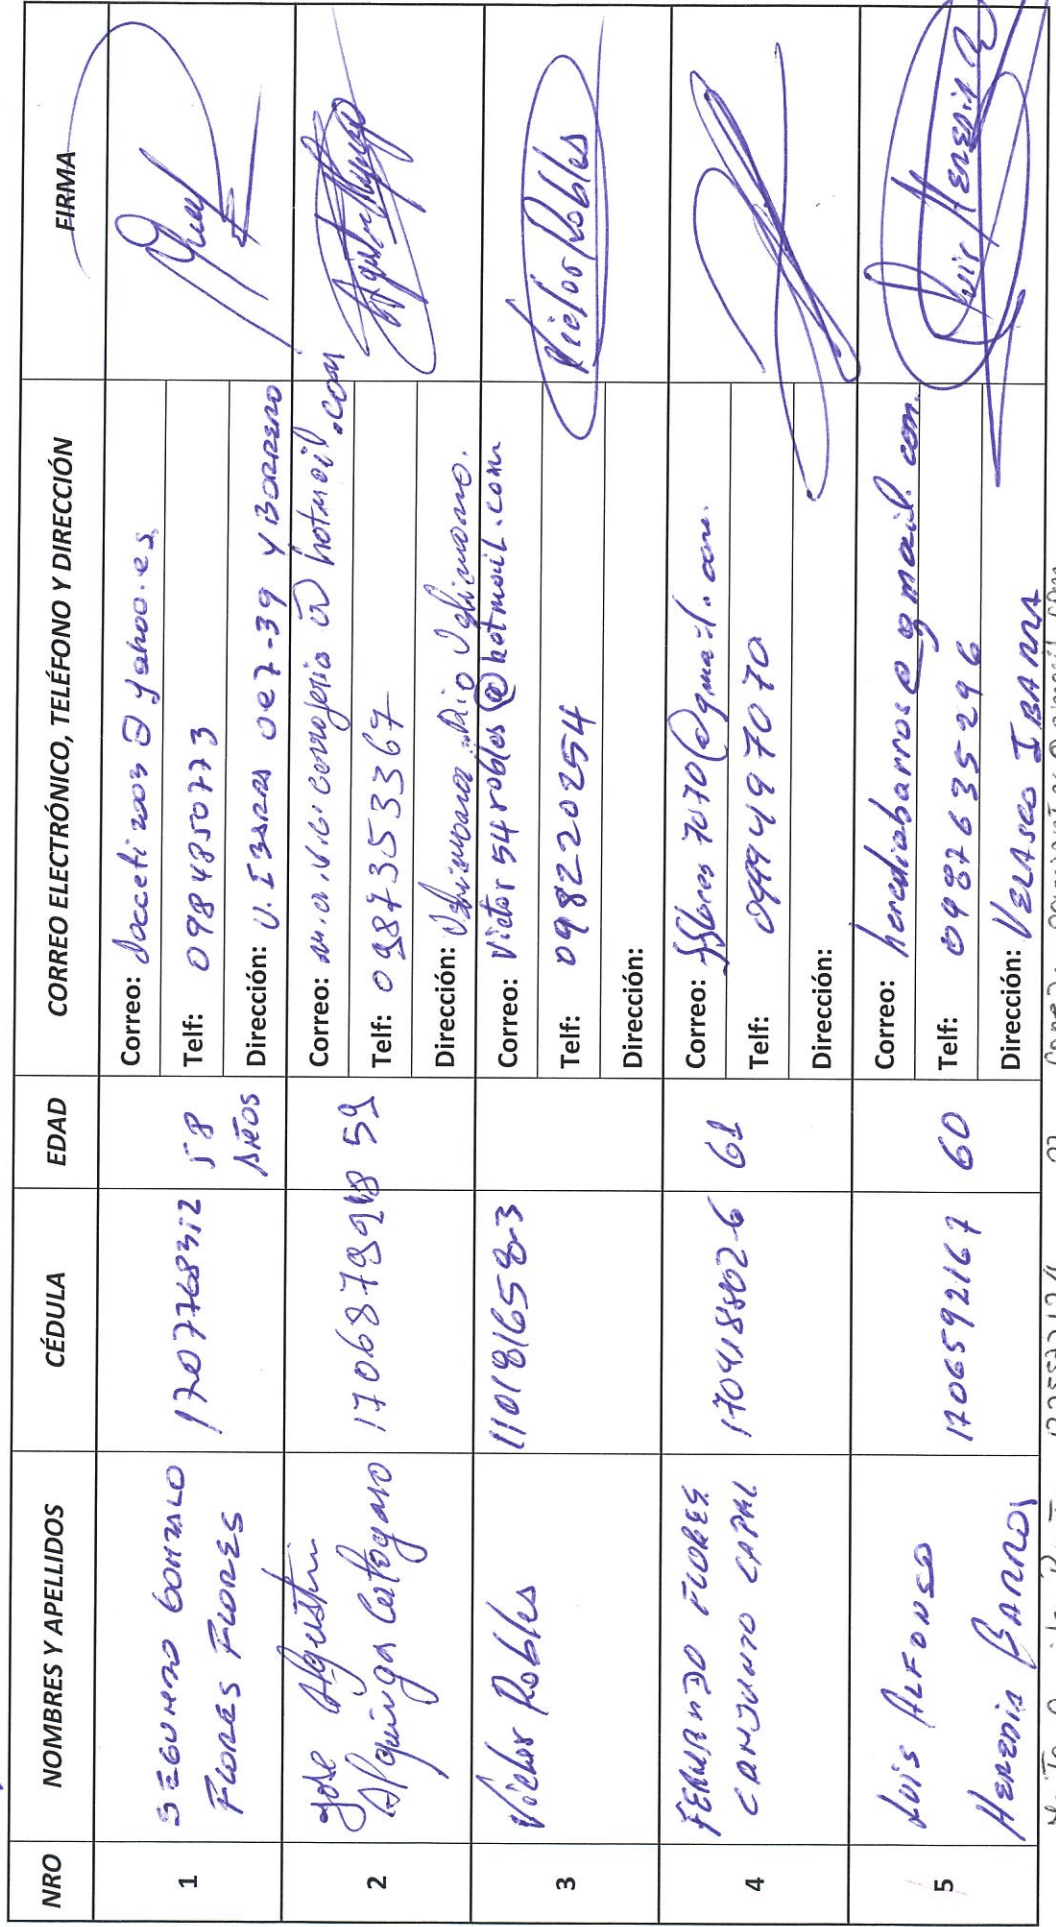 NRO NOMBRES Y APELLIDOS CÉDULA EDAD CORREO ELECTRÓNICO, TELÉFONO Y DIRECCIÓN FIRMA
1
SEGUNDO GONZALO
FLORES FLORES
1707768312
58
AÑOS
Correo: @yahoo.es
Telf: 0984850773
Dirección: V. IBARRA Oe7-39 y BORRERO
2
Jose Agustin
Alquinga
59
Correo: @hotmail.com
Telf: 0987353367
Dirección:
3
Victor Robles
110181659-3
Correo: victor54robles@hotmail.com
Telf: 0982220254
Dirección:
Victor Robles
4
FERNANDO FLORES
CONJUNTO CAPAL
170418802-6
61
Correo: fflores7070@gmail.com
Telf: 0994497070
Dirección:
5
Luis ALFONSO
HEREDIA BARROS
1706592167
60
Correo: herediabarros@gmail.com.
Telf: 0987635296
Dirección: VELASCO IBARRA
Luis Heredia B